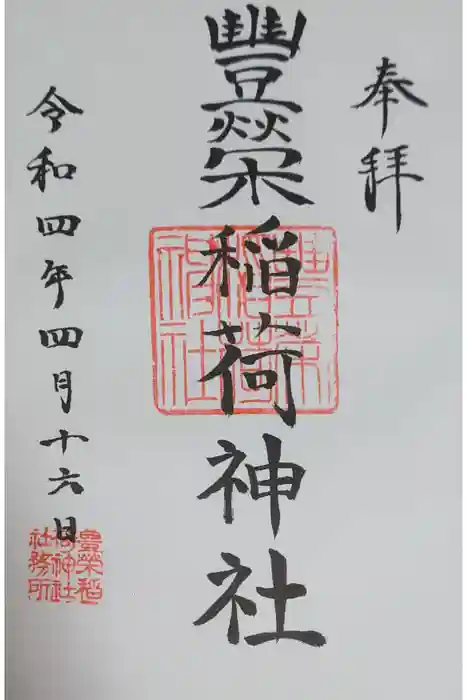 奉拝
豐榮稲荷神社
豊栄稲荷神社
令和四年四月十六日
豊榮稲
荷神社
社務所